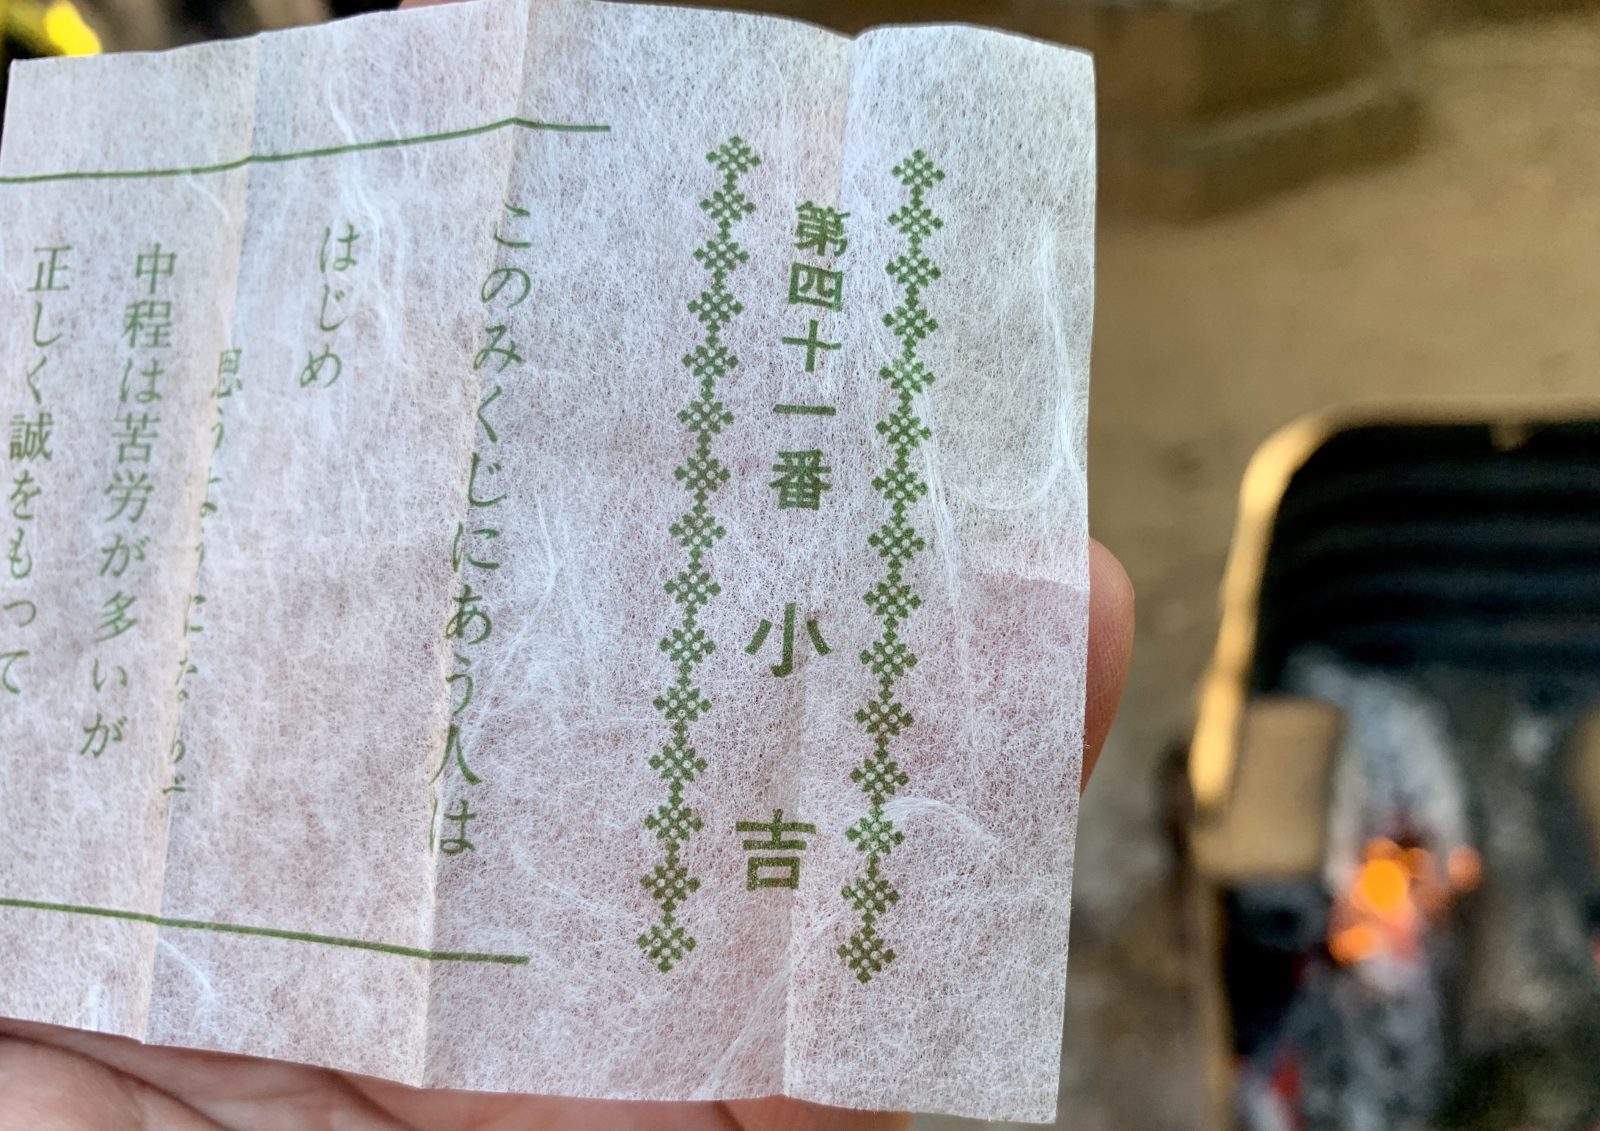 第四十一番 小吉
このみくじにあう人は
はじめ
思うようにな
中程は苦労が多いが
正しく誠をもって